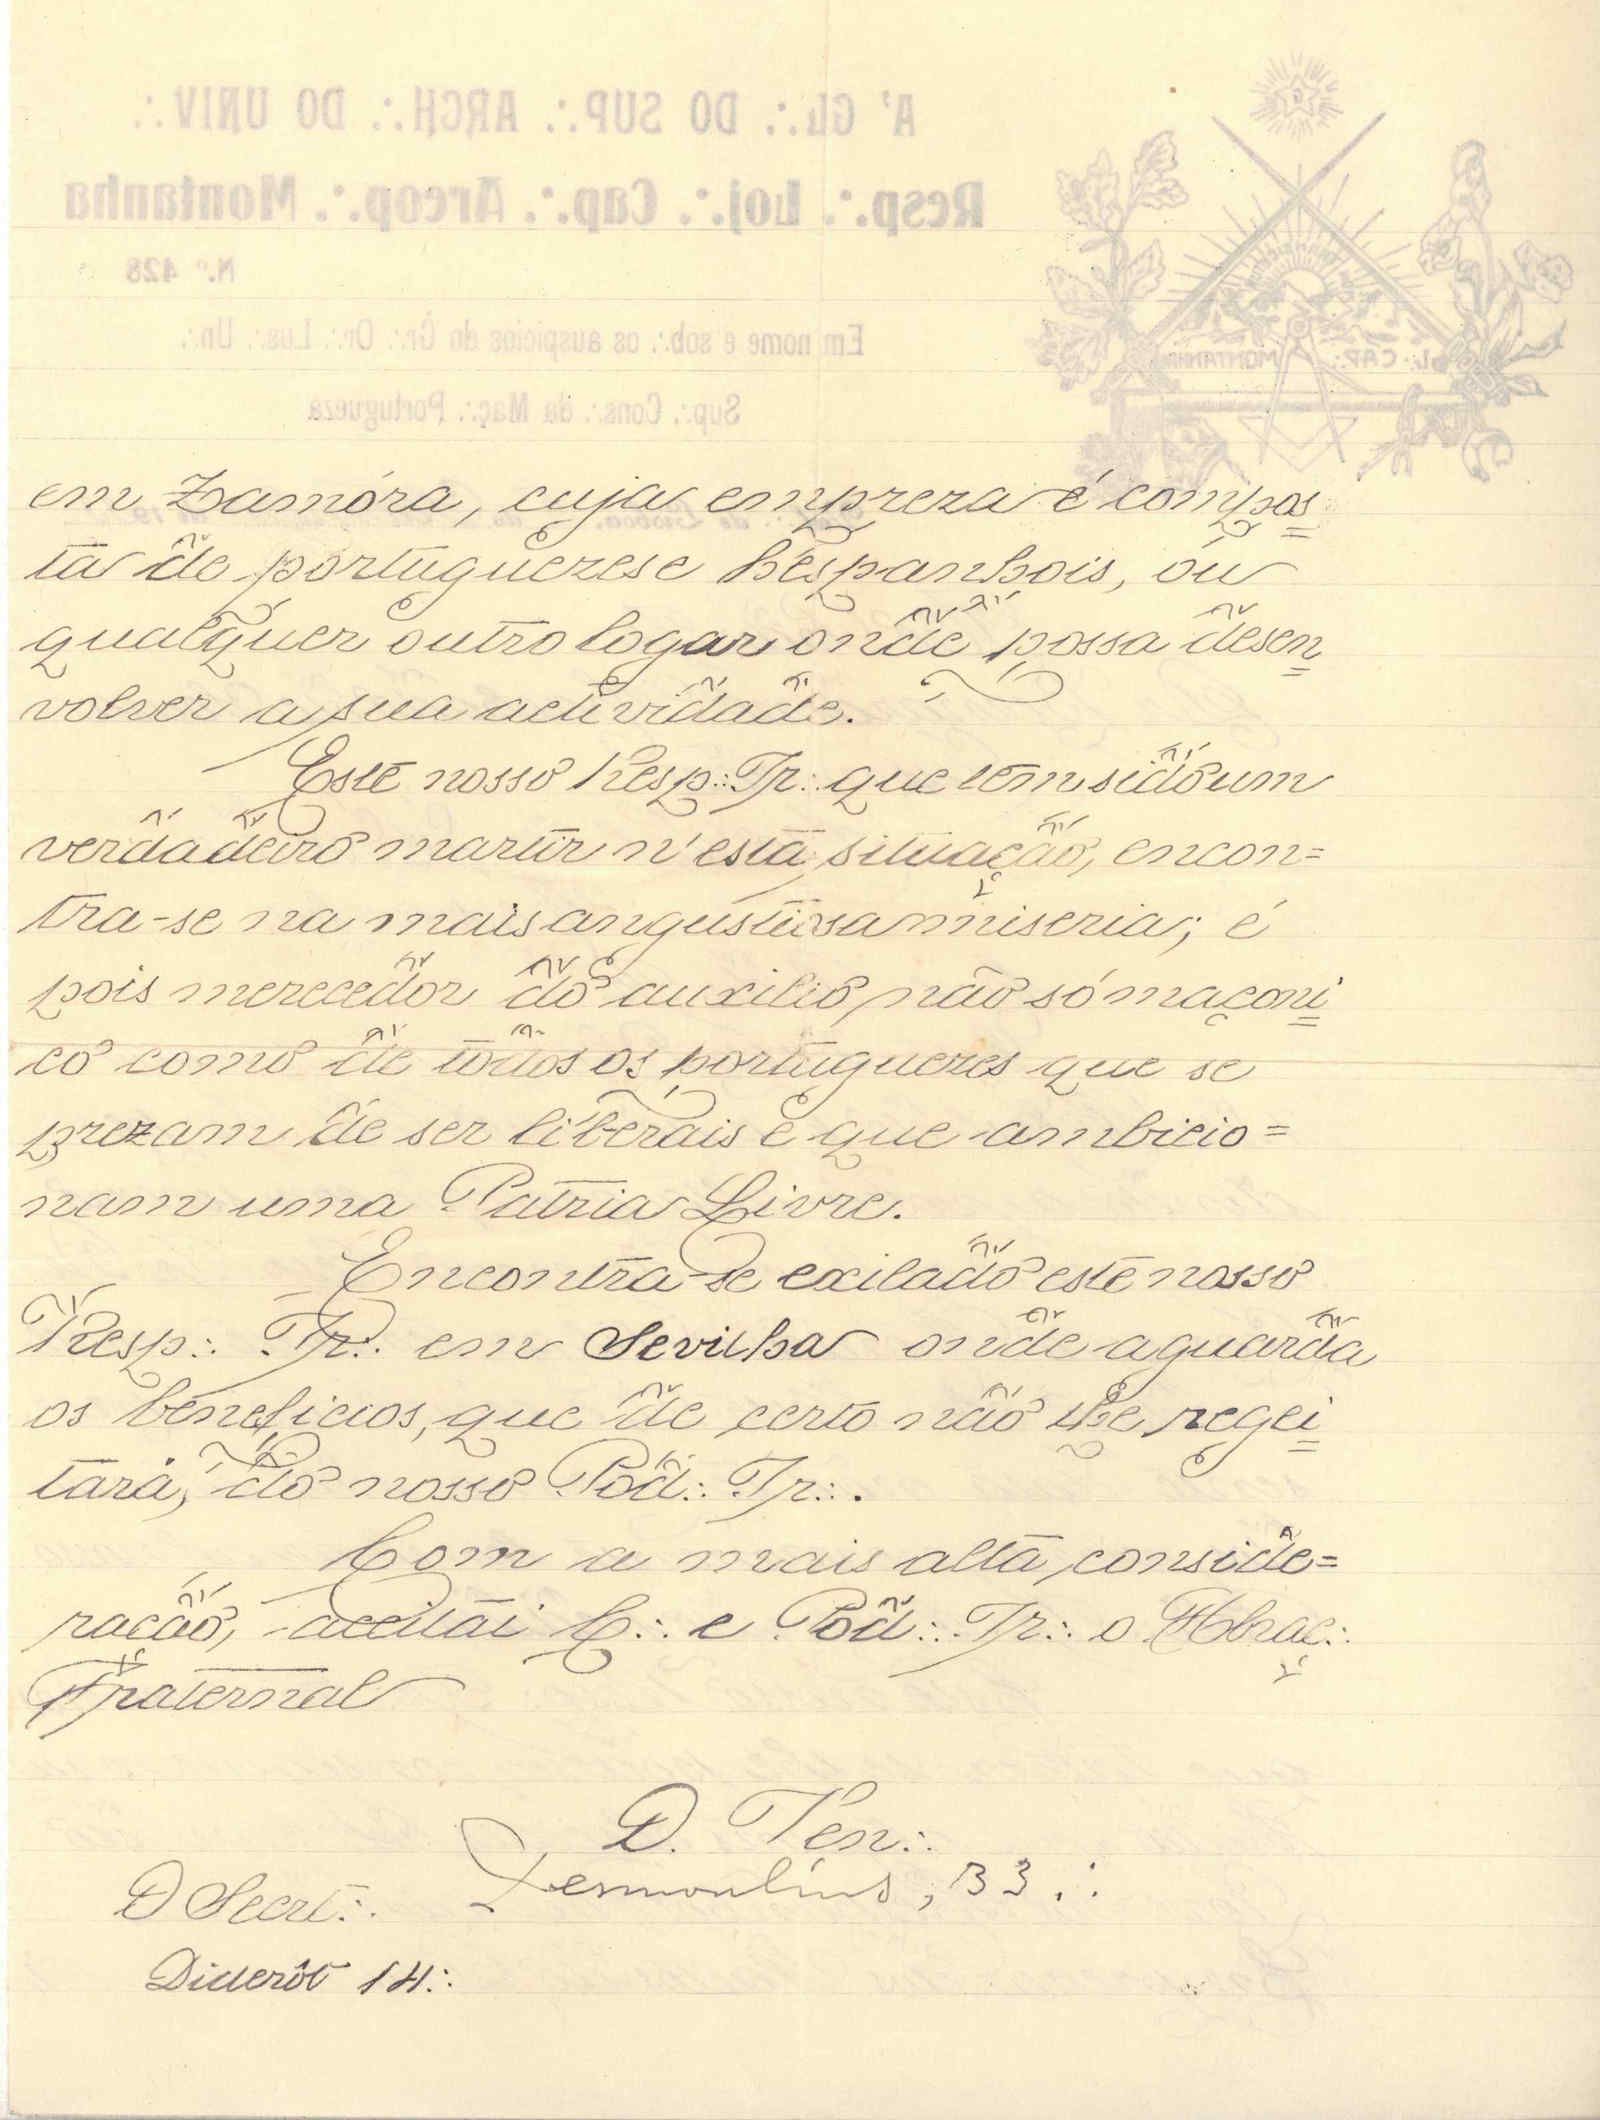 A' GL∴ DO SUP∴ ARCH∴ DO UNIV∴
Resp∴ Loj∴ Cap∴ Areop∴ Montanha
N.º 428
Em nome e sob∴ os auspicios do Gr∴ Or∴ Lus∴ Un∴
Sup∴ Cons∴ da Maç∴ Portugueza
L∴ CAP∴ MONTANHA
em Zamóra, cuja empreza é compos=
ta de portuguezes e hespanhois, ou
qualquer outro logar onde possa desen=
volver a sua actividade.
Este nosso Resp∴ Ir∴ que tem sido um
verdadeiro martir n'esta situação, encon=
tra-se na mais angustiosa miseria; é
pois merecedor do auxilio não só maçoni=
co como de todos os portuguezes que se
prezam de ser liberais e que ambicio=
nam uma Patria Livre.
Encontra-se exilado este nosso
Resp∴ Ir∴ em Sevilha onde aguarda
os beneficios, que de certo não lhe regei=
tará, do nosso Pod∴ Ir∴.
Com a mais alta conside=
ração, aceitai C∴ e Pod∴ Ir∴ o Abraç∴
Fraternal
O. Ven∴
Desmoulins, 33∴
O Secret∴
Diderôt 14∴